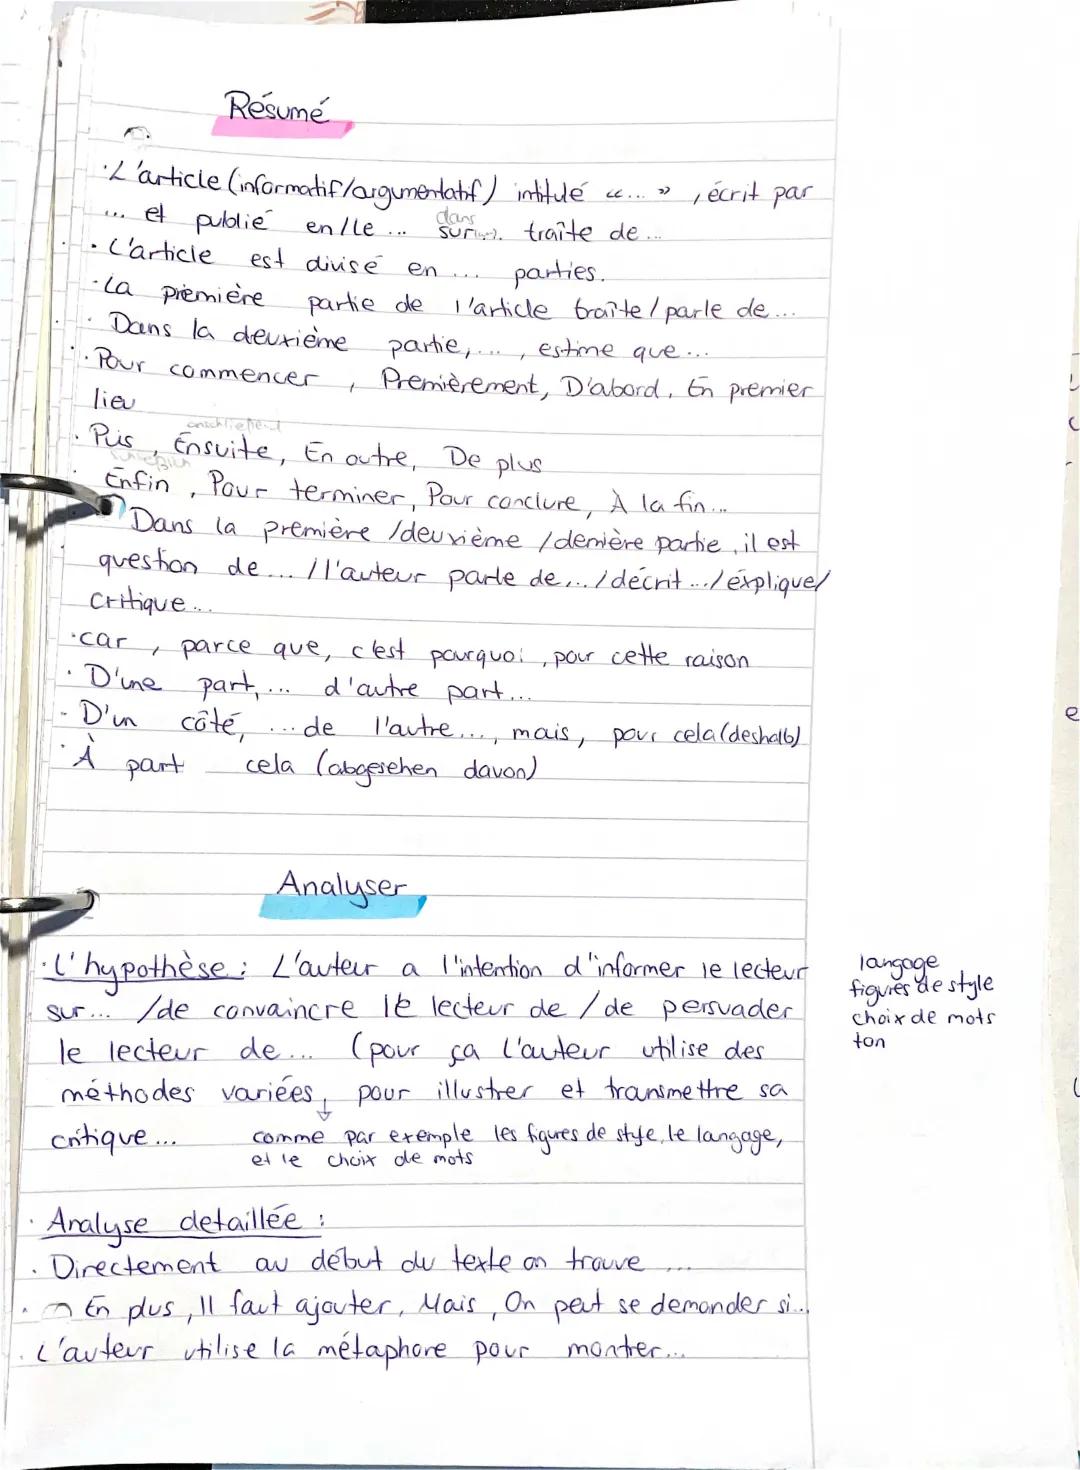 Résumé
· L'article (informatif/argumentatif) intitulé «...», écrit par
... et publié en/le ... dans sur traîte de...
· L'article est divisé en ... parties.
· La première partie de l'article traîte/parle de...
· Dans la deuxième partie, ..., estime que...
· Pour commencer, Premièrement, D'abord, En premier
lieu
anschließend
· Puis, Ensuite, En outre, De plus
Enfin, Pour terminer, Pour conclure, À la fin...
Dans la première/deuxième/dernière partie, il est
question de.../l'auteur parle de.../décrit.../éxplique/
critique...
· car, parce que, c'est pourquoi, pour cette raison
· D'une part, ... d'autre part...
· D'un côté, ... de l'autre..., mais, pour cela (deshalb)
· À part cela (abgesehen davon)
Analyser
· L'hypothèse: L'auteur a l'intention d'informer le lecteur
sur... /de convaincre le lecteur de /de persuader
le lecteur de... (pour ça l'auteur utilise des
méthodes variées, pour illustrer et transmettre sa
critique...
comme par exemple les figures de style, le langage,
et le choix de mots
langage
figures de style
choix de mots
ton
· Analyse detaillée:
· Directement au début du texte on trouve ...
· En plus, Il faut ajouter, Mais, On peut se demander si...
· L'auteur utilise la métaphore pour montrer...